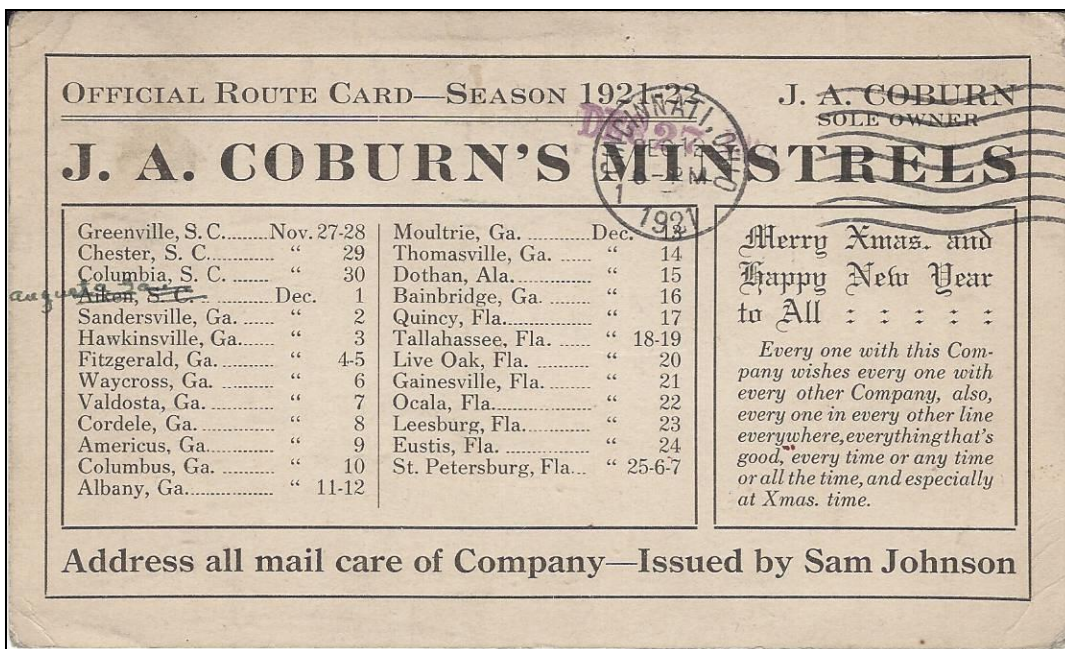 OFFICIAL ROUTE CARD—SEASON 1921-22
J. A. COBURN
SOLE OWNER
J. A. COBURN'S MINSTRELS
CINCINNATI, OHIO
DEC 27
DEC 12
PM
1
1921
Greenville, S. C........Nov. 27-28
Chester, S. C........... “ 29
Columbia, S. C. ........ “ 30
augusta ga
Aiken, S. C. ......... Dec. 1
Sandersville, Ga. ...... “ 2
Hawkinsville, Ga....... “ 3
Fitzgerald, Ga. .......... “ 4-5
Waycross, Ga. .......... “ 6
Valdosta, Ga. ............. “ 7
Cordele, Ga. .............. “ 8
Americus, Ga............ “ 9
Columbus, Ga. .......... “ 10
Albany, Ga................. “ 11-12
Moultrie, Ga. ..........Dec. 13
Thomasville, Ga. ...... “ 14
Dothan, Ala. ............. “ 15
Bainbridge, Ga. ......... “ 16
Quincy, Fla................ “ 17
Tallahassee, Fla. ...... “ 18-19
Live Oak, Fla. ........... “ 20
Gainesville, Fla. ........ “ 21
Ocala, Fla................... “ 22
Leesburg, Fla............. “ 23
Eustis, Fla. ................ “ 24
St. Petersburg, Fla... “ 25-6-7
Merry Xmas. and
Happy New Year
to All : : : : :
Every one with this Com-
pany wishes every one with
every other Company, also,
every one in every other line
everywhere, everything that's
good, every time or any time
or all the time, and especially
at Xmas. time.
Address all mail care of Company—Issued by Sam Johnson